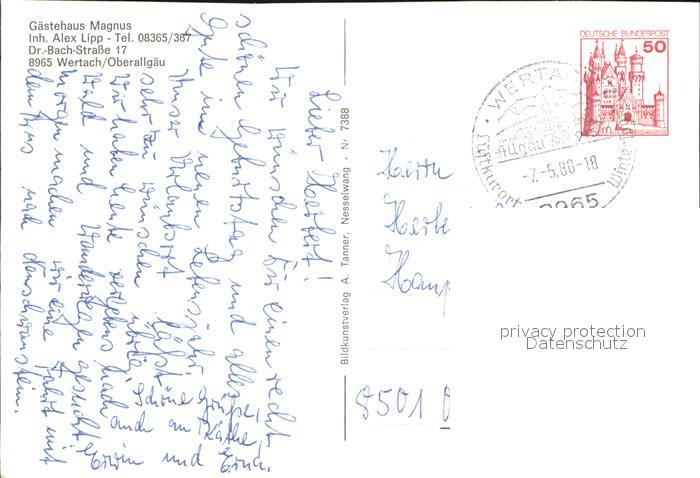 Gästehaus Magnus
Inh. Alex Lipp - Tel. 08365/367
Dr.-Bach-Straße 17
8965 Wertach/Oberallgäu
Lieber Herbert!
Wir wünschen Dir einen recht
schönen Geburtstag und alles
Gute im neuen Lebensjahr.
Unser Urlaubsort läßt
sehr zu wünschen übrig.
Wir haben heute vergebens nach
Wald und Wanderwegen gesucht.
Morgen machen wir eine Fahrt mit
dem Bus nach Neuschwanstein.
Schöne Grüße,
auch an Käthe,
und
Bildkunstverlag A. Tanner, Nesselwang - Nr 7388
DEUTSCHE BUNDESPOST
50
WERTA
Allgäu
Luftkurort
Winter
-7.-5.80-18
8965
Herrn
Herbe
Haup
8501
privacy protection
Datenschutz